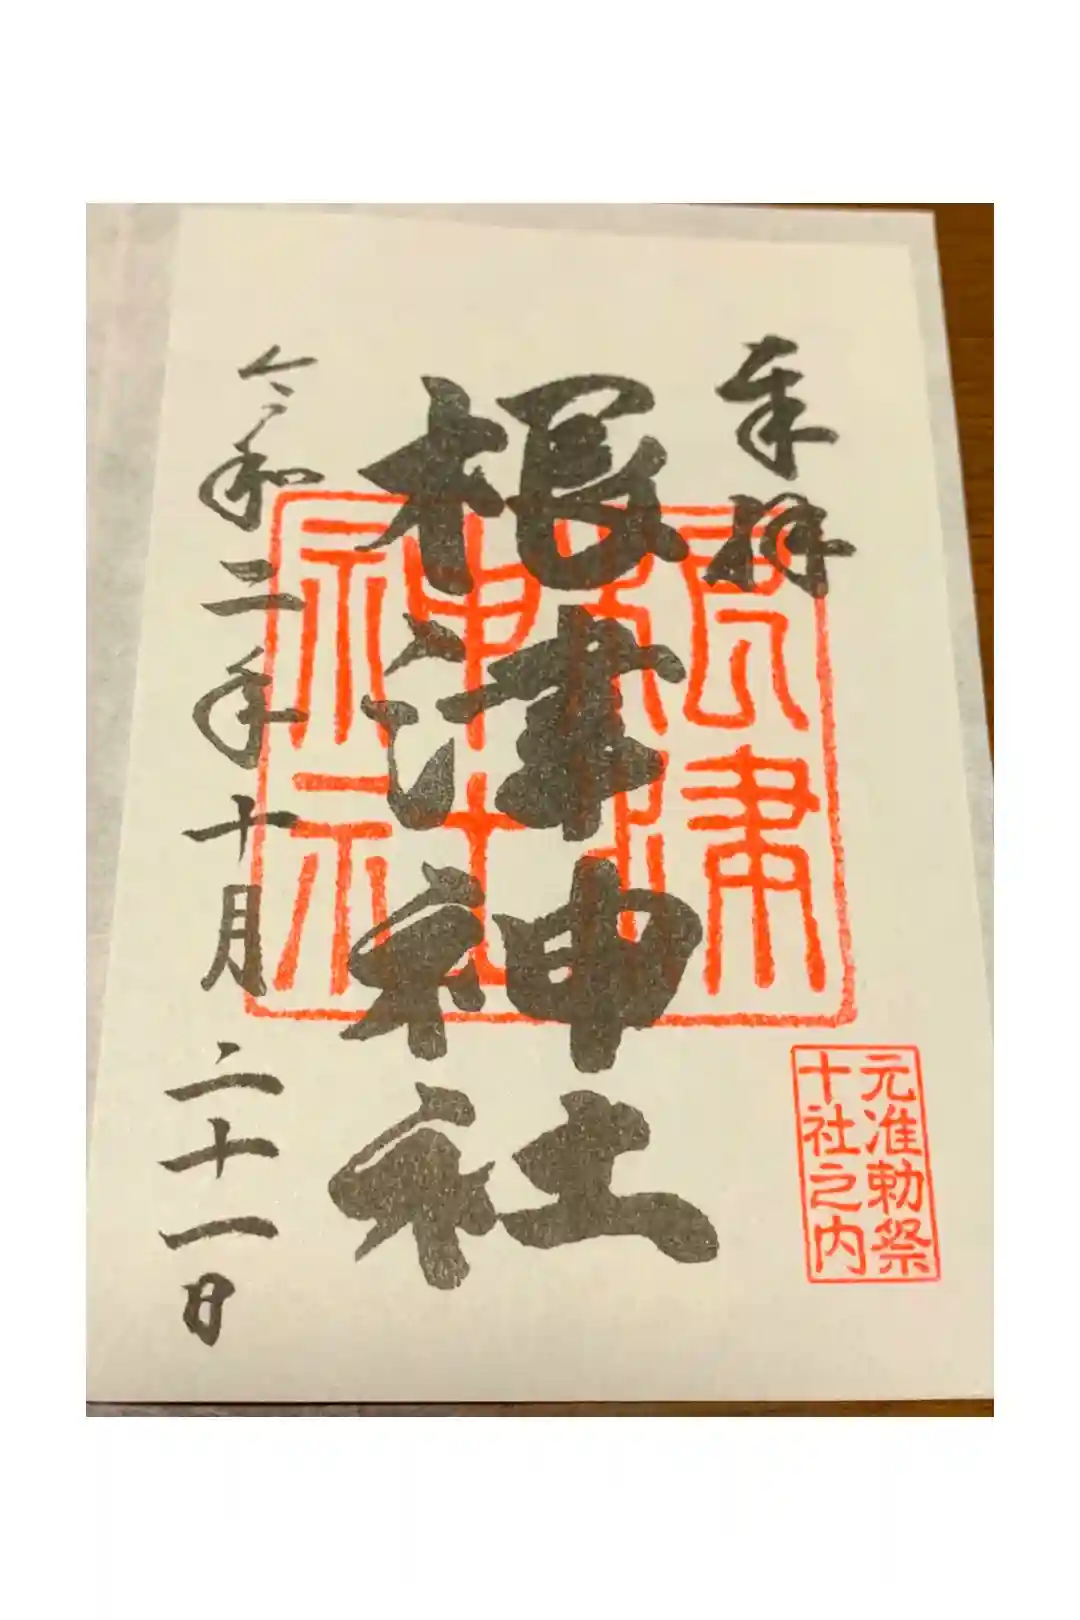 奉拝
根津神社
根津
神社
元准勅祭
十社之内
令和二年十月二十一日